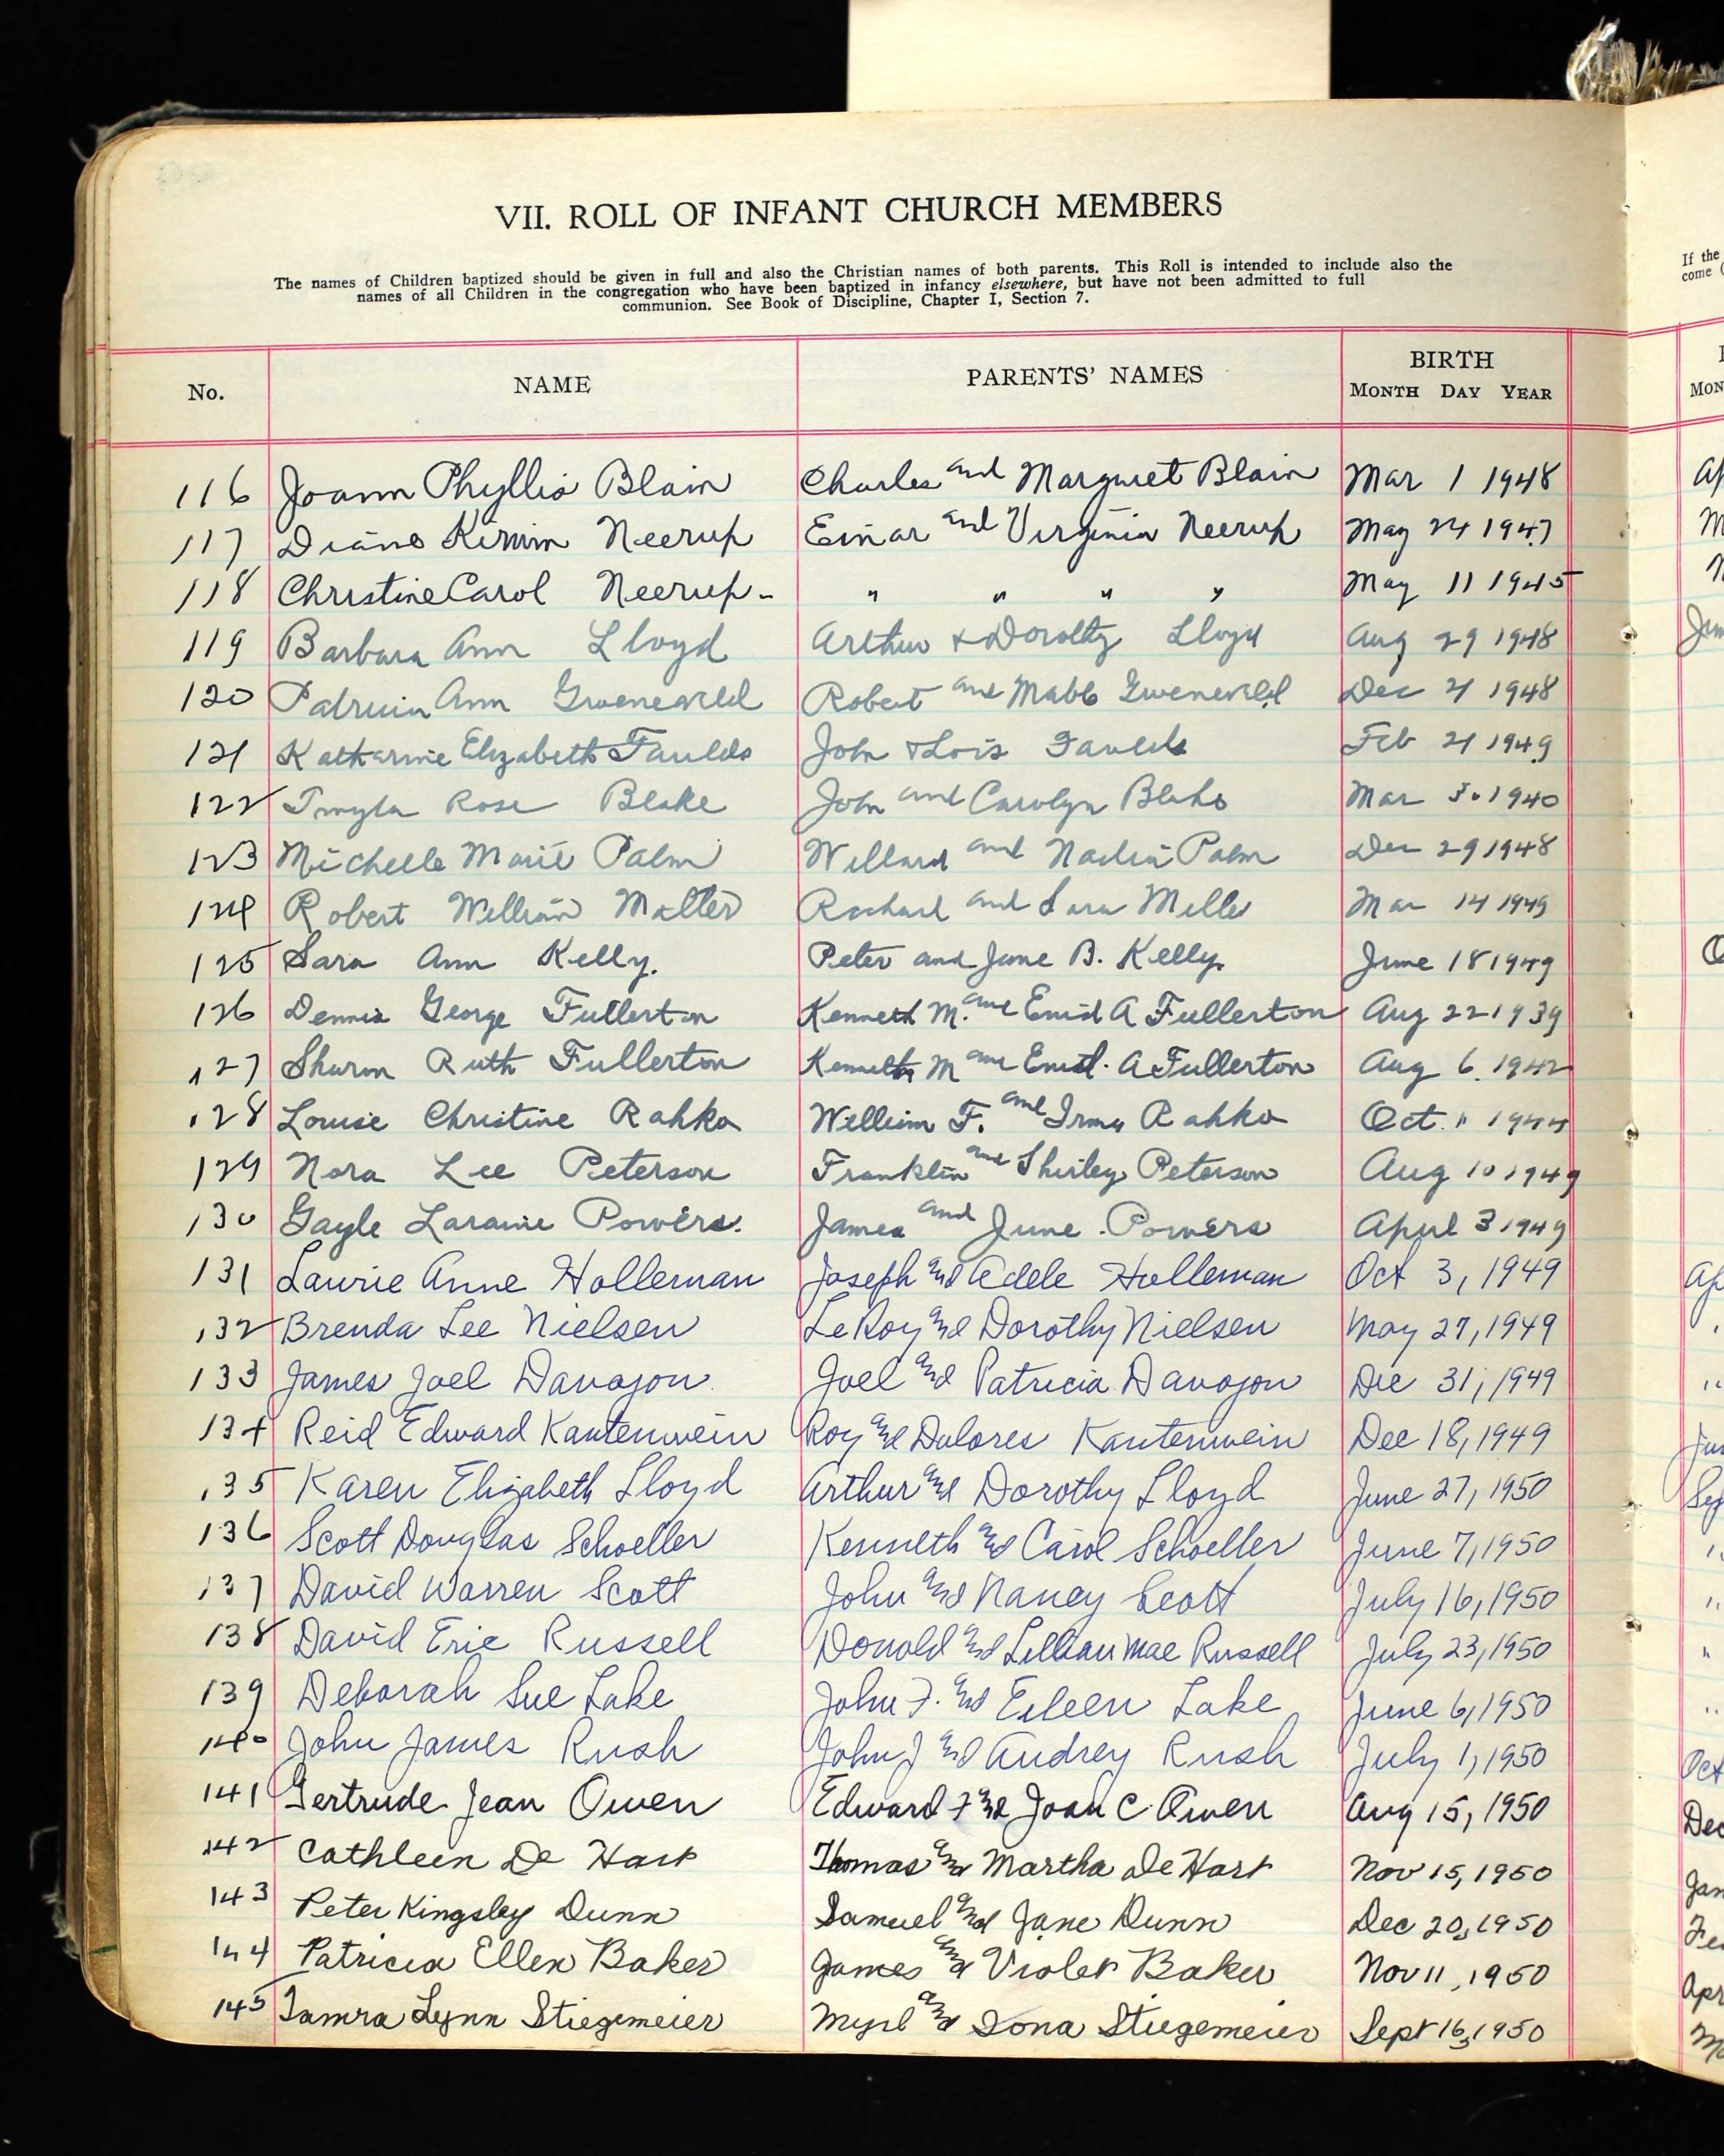 VII. ROLL OF INFANT CHURCH MEMBERS
The names of Children baptized should be given in full and also the Christian names of both parents. This Roll is intended to include also the
names of all Children in the congregation who have been baptized in infancy elsewhere, but have not been admitted to full
communion. See Book of Discipline, Chapter I, Section 7.
If the
come (
No. NAME PARENTS' NAMES BIRTH
MONTH DAY YEAR
116 Joann Phyllis Blain Charles and Margaret Blain Mar 1 1948
117 Diane Neerup Einar and Virginia Neerup May 24 1947
118 Christine Carol Neerup - " " " " May 11 1945
119 Barbara Ann Lloyd Arthur & Dorothy Lloyd Aug 29 1948
120 Ann Robert and Dec 21 1948
121 Katharine Elizabeth Faulds John & Lois Faulds Feb 21 1949
122 Rose Blake John and Carolyn Blake Mar 1940
123 Michelle Marie Palm Willard and Palm Dec 29 1948
124 Robert William Miller Richard and Sara Miller Mar 14 1949
125 Sara Ann Kelly. Peter and June B. Kelly June 18 1949
126 Dennis George Fullerton Kenneth M. and Enid A Fullerton Aug 22 1939
127 Sharon Ruth Fullerton Kenneth M and Enid. A Fullerton Aug 6 1942
128 Louise Christine Rahko William F. and Irma Rahko Oct. 11 1944
129 Nora Lee Peterson Franklin and Shirley Peterson Aug 10 1949
130 Gayle Laraine Powers. James and June Powers April 3 1949
131 Laurie Anne Holleman Joseph and Adele Holleman Oct 3, 1949
132 Brenda Lee Nielsen LeRoy and Dorothy Nielsen May 27, 1949
133 James Joel Davajon Joel and Patricia Davajon Dec 31, 1949
134 Reid Edward Kautenwein Roy and Dolores Kautenwein Dec 18, 1949
135 Karen Elizabeth Lloyd Arthur and Dorothy Lloyd June 27, 1950
136 Scott Douglas Schoeller Kenneth and Carol Schoeller June 7, 1950
137 David Warren Scott John and Nancy Scott July 16, 1950
138 David Eric Russell Donald and Lillian Mae Russell July 23, 1950
139 Deborah Sue Lake John F. and Eileen Lake June 6, 1950
140 John James Rush John J and Audrey Rush July 1, 1950
141 Gertrude Jean Owen Edward F and Joan C Owen Aug 15, 1950
142 Cathleen De Hart Thomas and Martha De Hart Nov 15, 1950
143 Peter Kingsley Dunn Samuel and Jane Dunn Dec 20, 1950
144 Patricia Ellen Baker James and Violet Baker Nov 11, 1950
145 Tamra Lynn Stiegemeier Myrl and Iona Stiegemeier Sept 16, 1950